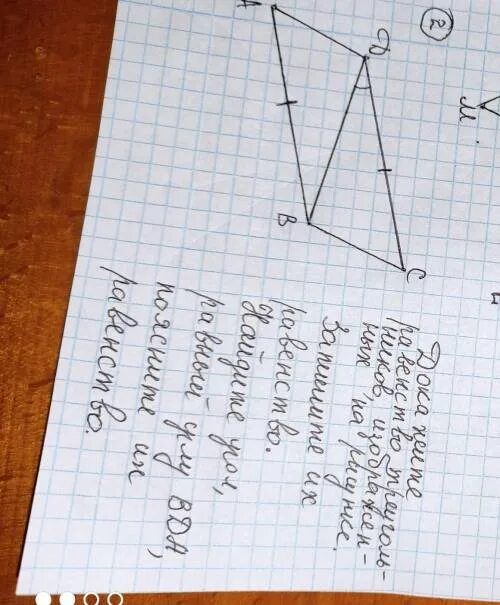 2
M
A
D
B
C
Докажите
равенство треуголь-
ников, изображен-
ных на рисунке.
Запишите их
равенство.
Найдите угол,
равный углу BDA,
поясните их
равенство.